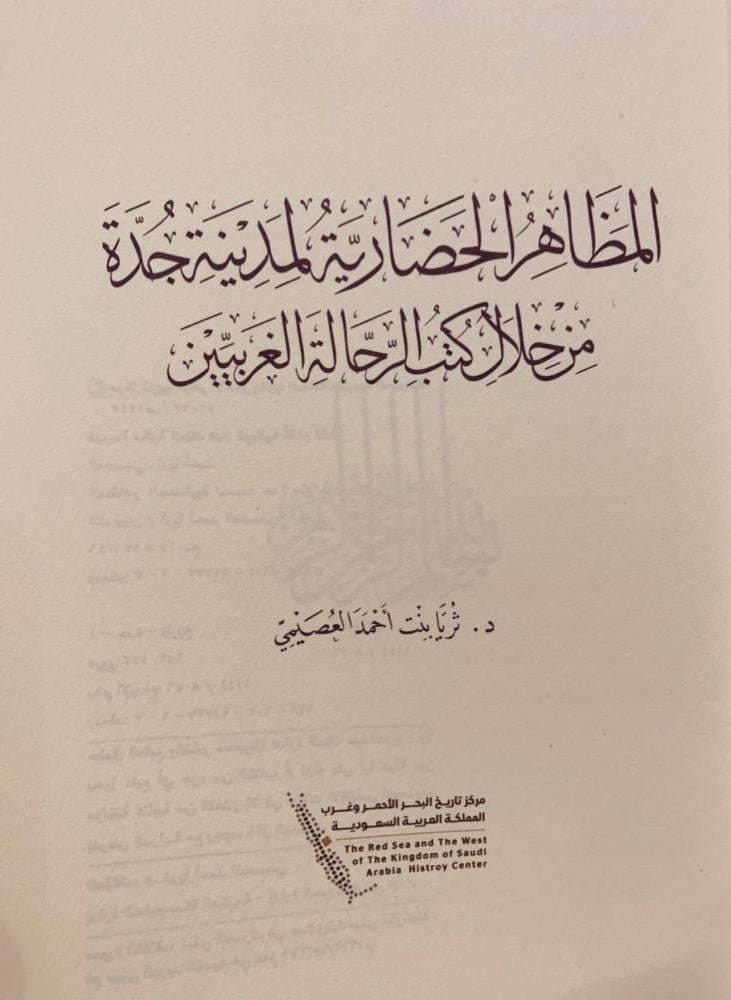 المَظَاهِرُ الحَضَارِيَّةُ لمَدِيْنَةِ جُدَّةَ
مِنْ خِلَالِ كُتُبِ الرَّحَّالَةِ الغَرْبِيِّيْن
د. ثُرَيَّا بِنْت أَحْمَد العُصَيْمِيّ
مركز تاريخ البحر الأحمر وغرب
المملكة العربية السعودية
The Red Sea and The West
of The Kingdom of Saudi
Arabia Histroy Center